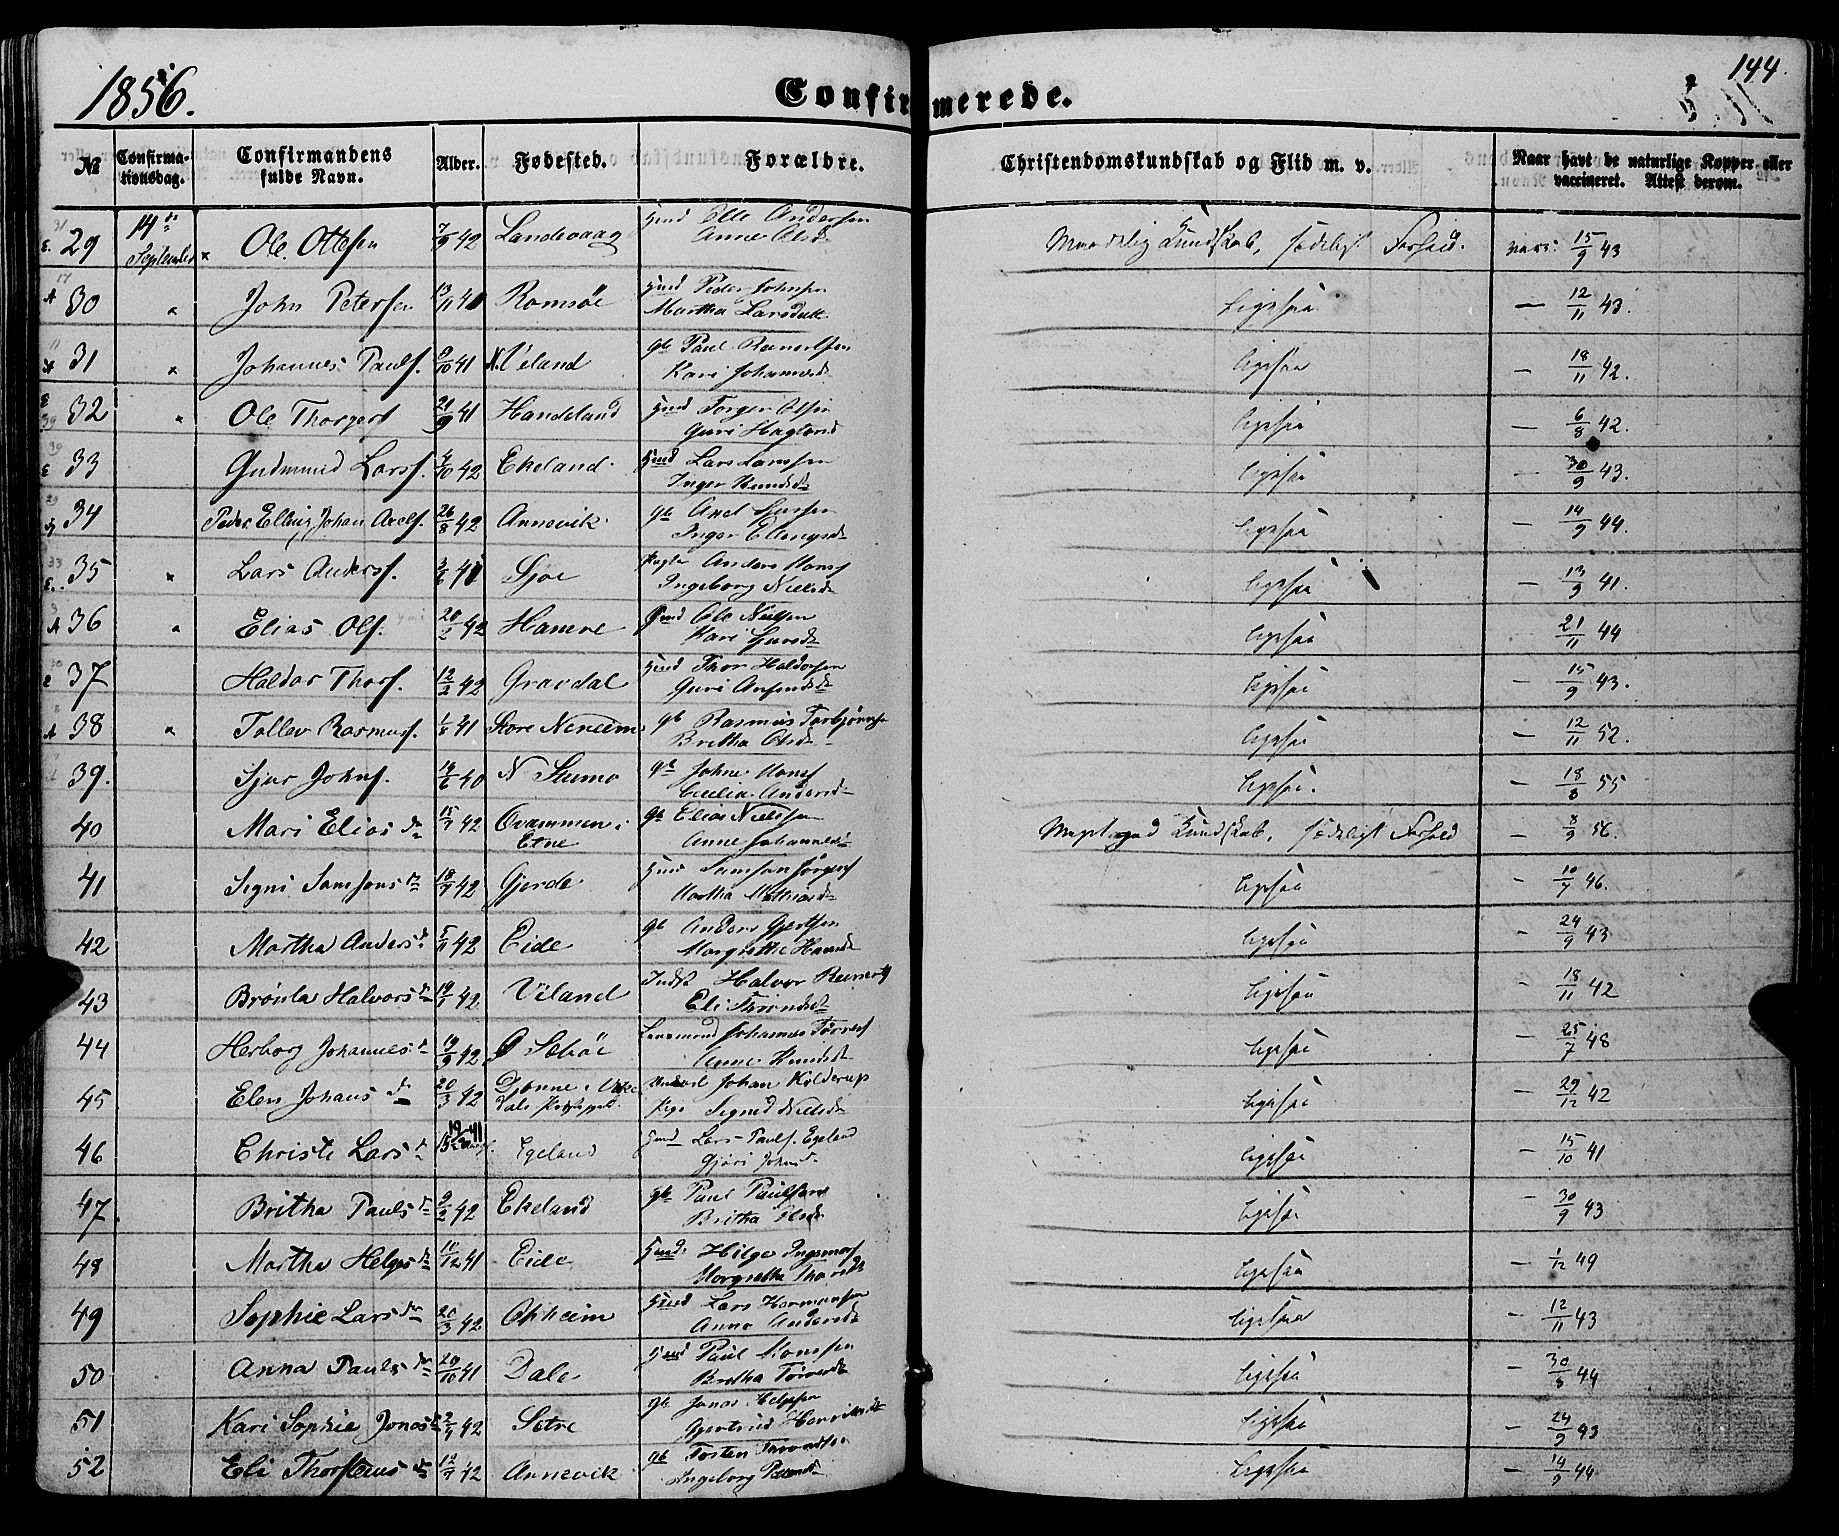 1856.
Confirmerede.
144.
№ Confirmationsdag. Confirmandens fulde Navn. Alder. Fødested. Forældre. Christendomskundskab og Flid m. v. Naar havt de naturlige Kopper eller vaccineret. Attest derom.
29 14de September Ole Ottesen 7/9 42 Landevaag Hmd Otte Andersen Anne Olsd. Kundskab, sædeligt Forhold. vacc. 15/9 43
30 " John Petersen 13/11 41 Romsøe Hmd Peder Johnsen Martha Larsdatt. Ligesaa — 12/11 43.
31 " Johannes Pauls. 41 N. Veland gb Paul Kari Johannesd. Ligesaa — 18/11 42.
32 " Ole Thorgers. 21/9 41 Handeland Hmd Torger Olsen Guri Ligesaa — 6/8 42.
33 Gudmund Larss. 4/10 42 Ekeland. Hmd Lars Larssen Inger Knudsdt. Ligesaa — 30/9 43.
34 Peder Elling Johan Axels. 26/8 42 Annevik. gb Axel Inger Ellingsdt. Ligesaa — 14/9 44.
35 " Lars Anders. 41 Sjoe Anders Hans. Ingeborg Nielsdt. Ligesaa — 13/9 41.
36 " Elias Ols. 20/2 42 Hamre Hmd Ole Nielsen Kari Sjursdt. Ligesaa 21/11 44
37 Haldor Thors. 12/2 42 Gravdal Hmd Thor Haldorsen Guri Ligesaa — 15/9 43.
38 " Tollev Rasmus. 1/8 41 Store Nereim gb Rasmus Torbjørns. Britha Olsd. Ligesaa — 12/11 52.
39. Sjur Johns. 19/6 40 N Stumo gb Johne Hans. Cecilia Andersd. Ligesaa. — 18/8 55
40 Mari Eliasdr. 15/7 42 i Etne gb Elias Nielssen Anne Johannesd. Kundskab, sædeligt Forhold — 8/9 56.
41 Segni Samsonsdr. 18/9 42 Gjerde Hmd Samson Martha Ligesaa — 10/7 46.
42 Martha Andersd. 5/11 42 Eide gb Anders Gjertsen Margrethe Ligesaa — 24/9 43
43 Brønla Halvorsdr. 19/1 42. Veland Indst Halvor Eli Ligesaa — 18/11 42
44 Herborg Johannesd. 19/9 42 Ø Sebøe Lensmand Johannes Anne Knudsdt Ligesaa — 25/7 48
45 Elen Johansdr. 20/3 42 Djønne i Johan Kilderup Pige Nielsdt Ligesaa — 29/12 42
46 Christi Larsd. 19/3 41 Egeland Hmd Lars Pauls. Egeland Gjøri Johnsd. Ligesaa — 15/10 41
47 Britha Paulsdr. 9/2 42 Ekeland gb Paul Paulsen Britha Olsd. Ligesaa — 30/9 43
48 Martha Helgesdr. 10/12 41 Eide Hmd. Helge Ingemars. Margrethe Thorsdt Ligesaa — 1/12 49
49 Sophie Larsdtr. 20/3 42 Opheim Hmd Lars Hermansen Anna Andersdt Ligesaa — 12/11 43
50 Anna Paulsdtr. 29/10 41 Dale Hmd Paul Monssen Britha Ligesaa — 30/8 44
51 Kari Sophie Jonasd. 2/4 42 Sætre gb Jonas Gjertrud Henriksdt Ligesaa — 24/9 43
52 Eli Thorstensdr. 12/9 42 Annevik gb Torsten Ingeborg Ligesaa — 14/9 44